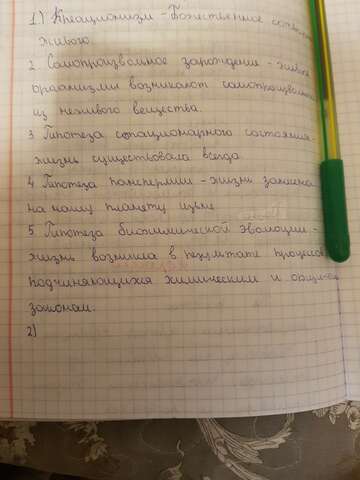 1) Креационизм - Божественное
живого.
2 Самопроизвольное зарождение - живые
организмы возникают самопроизвольно
из неживого вещества.
3 Гипотеза стационарного состояния -
жизнь существовала всегда
4 Гипотеза панспермии - жизнь занесена
на нашу планету извне
5 Гипотеза биохимической эволюции -
жизнь возникла в результате процессов
подчиняющихся химическим и
законам.
2)